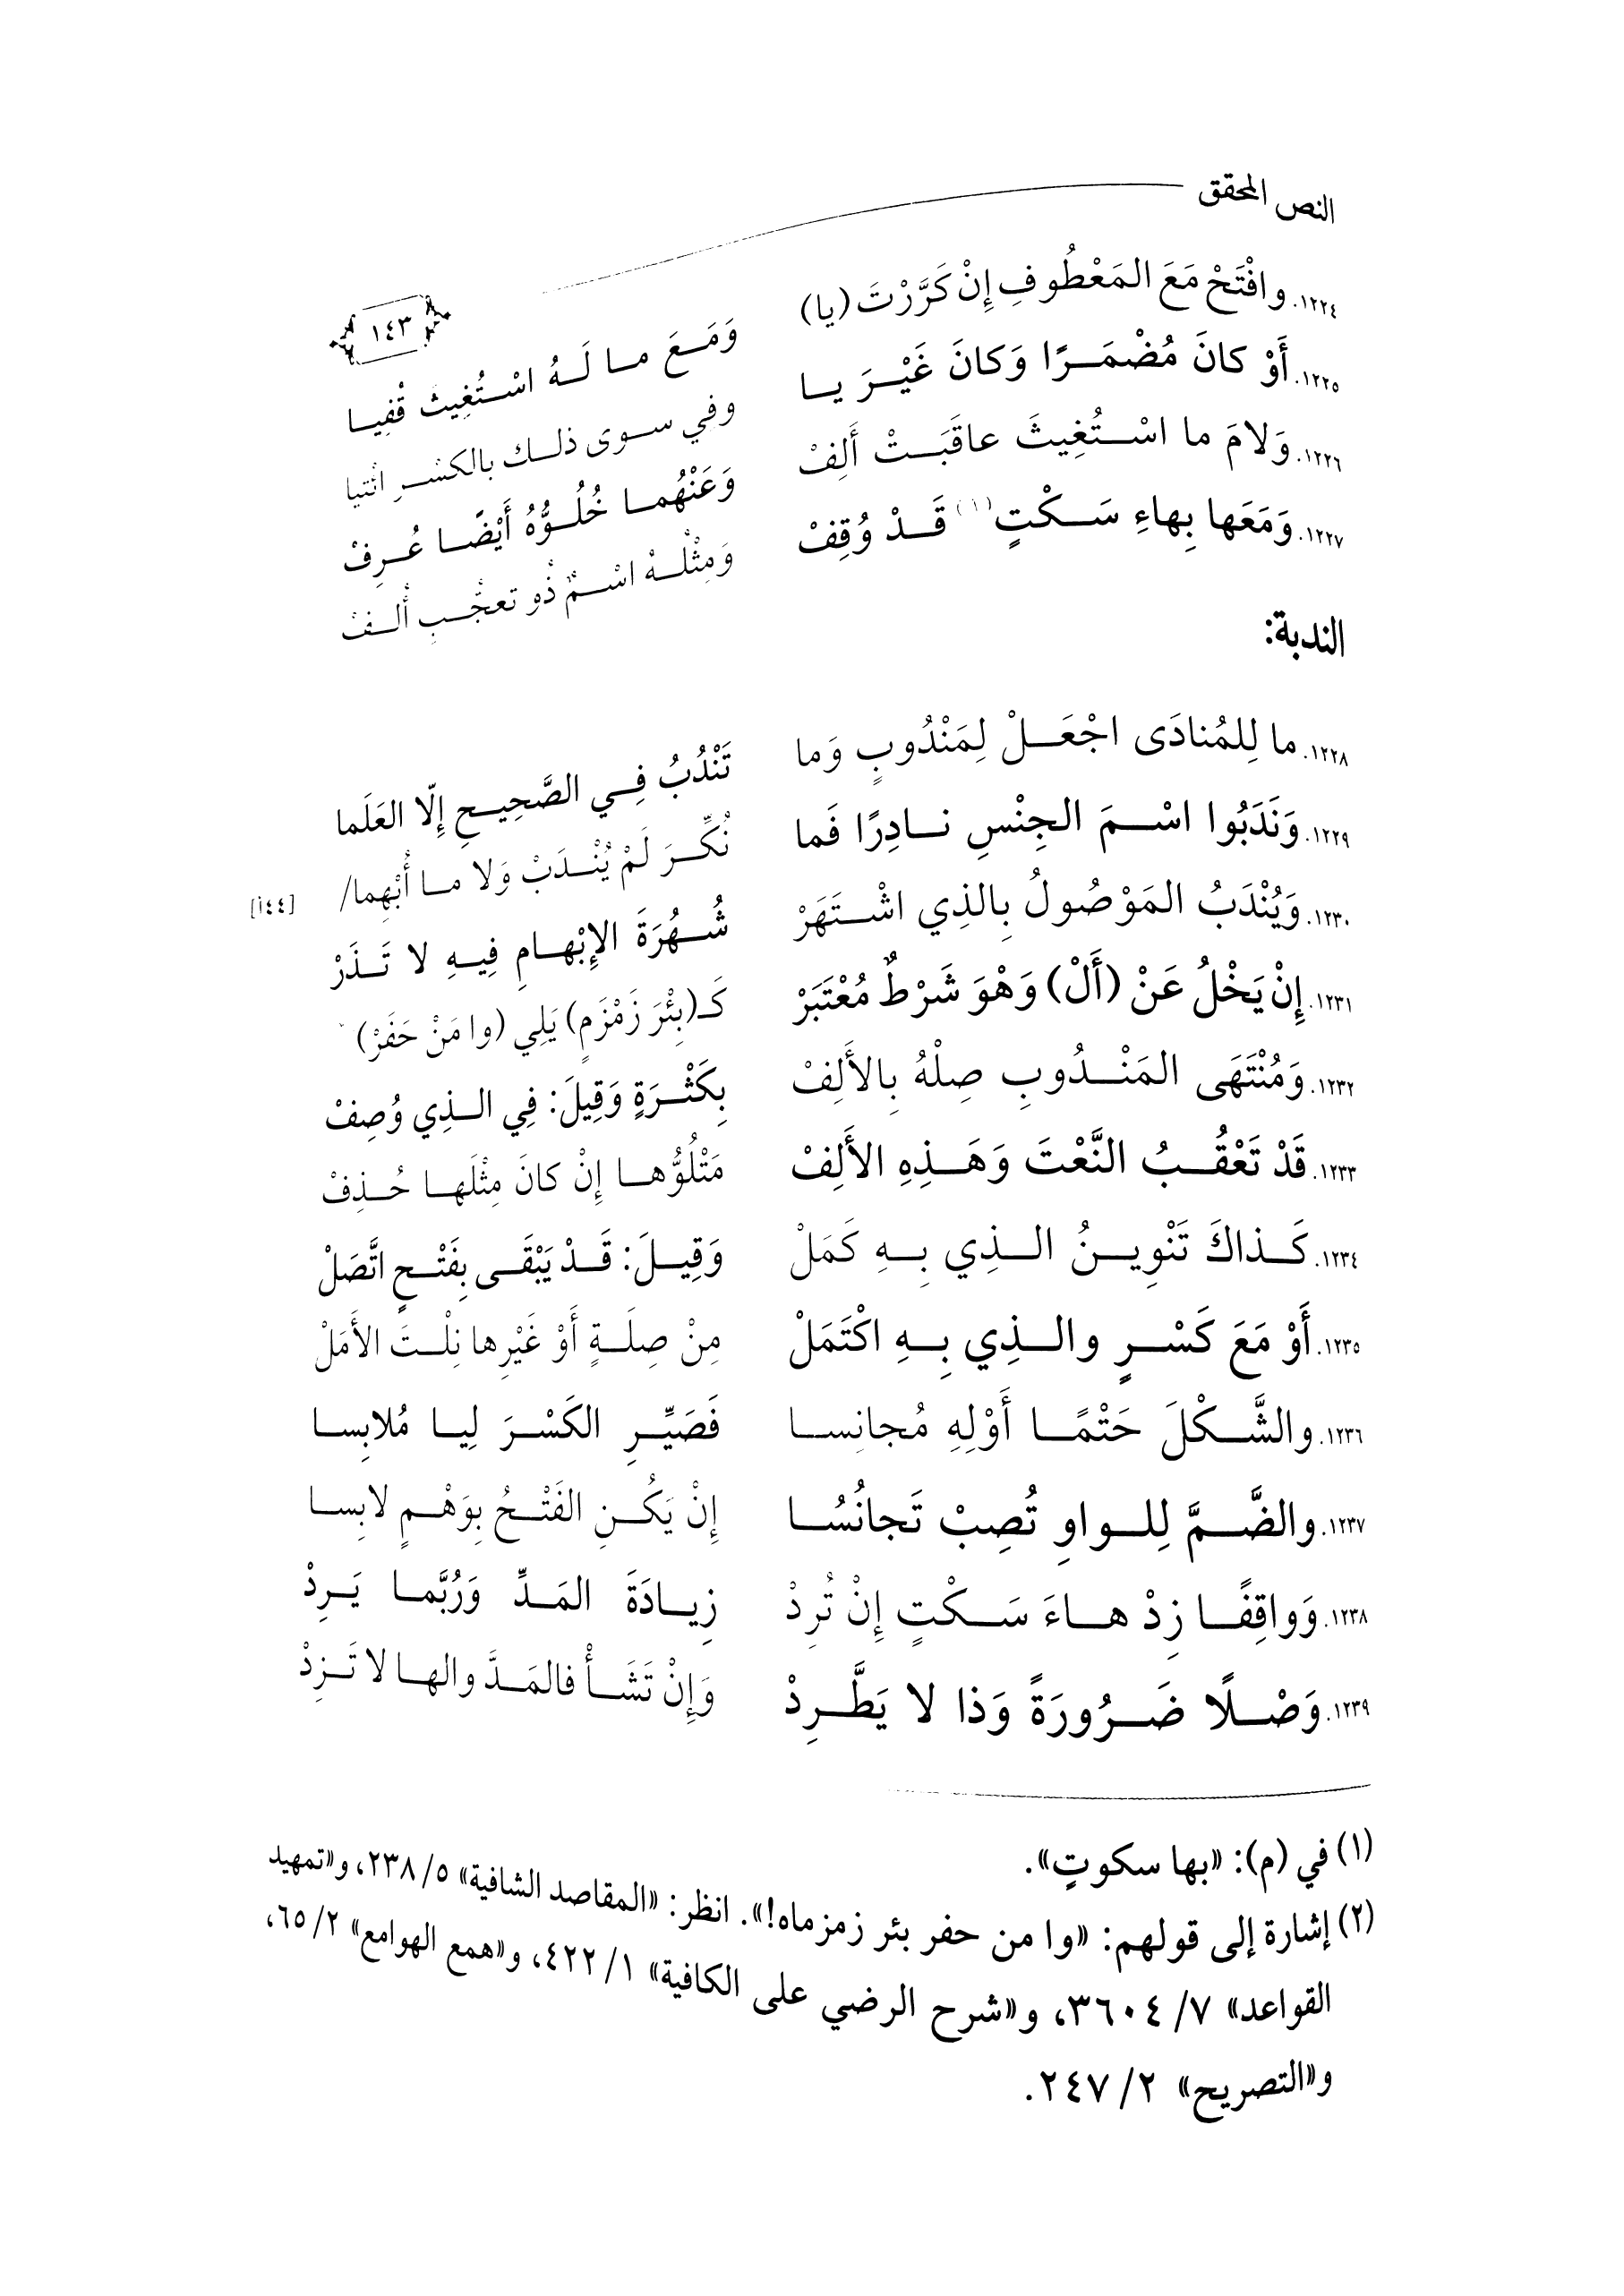 النص المحقق
١٤٣
١٢٢٤. وافْتَحْ مَعَ المَعْطُوفِ إِنْ كَرَّرْتَ (يا) وَمَـعَ مـا لَـهُ اسْـتُغِيثَ قُفِيـا
١٢٢٥. أَوْ كانَ مُضْمَـرًا وَكانَ غَيْـرَ يـا وفي سـوى ذلـك بالكسْـرِ ائتيا
١٢٢٦. وَلامَ ما اسْـتُغِيثَ عاقَبَـتْ أَلِفْ وَعَنْهُمـا خُلُـوُّهُ أَيْضًـا عُـرِفْ
١٢٢٧. وَمَعَها بِهاءِ سَـكْتٍ(١) قَـدْ وُقِفْ وَمِثْلُـهُ اسْـمٌ ذُو تعجُّـبٍ أُلـفْ
الندبة:
١٢٢٨. ما لِلمُنادَى اجْعَـلْ لِمَنْدُوبٍ وَما تَنْدُبُ فِـي الصَّحِيـحِ إِلّا العَلَما
١٢٢٩. وَنَدَبُوا اسْـمَ الجِنْسِ نـادِرًا فَما نُكِّـرَ لَمْ يُنْـدَبْ وَلا مـا أُبْهِما/
[٤٤أ]
١٢٣٠. وَيُنْدَبُ المَوْصُولُ بِالذِي اشْـتَهَرْ شُـهْرَةَ الإِبْهـامِ فِيـهِ لا تَـذَرْ
١٢٣١. إِنْ يَخْلُ عَنْ (أَلْ) وَهْوَ شَرْطٌ مُعْتَبَرْ كَـ(بِئْرَ زَمْزَمٍ) يَلِي (وا مَنْ حَفَرْ)
١٢٣٢. وَمُنْتَهَى المَنْـدُوبِ صِلْهُ بِالأَلِفْ بِكَثْـرَةٍ وَقِيلَ: فِي الـذِي وُصِفْ
١٢٣٣. قَدْ تَعْقُـبُ النَّعْتَ وَهَـذِهِ الأَلِفْ مَتْلُوُّهـا إِنْ كانَ مِثْلَهـا حُـذِفْ
١٢٣٤. كَـذاكَ تَنْوِيـنُ الـذِي بِـهِ كَمَلْ وَقِيـلَ: قَـدْ يَبْقَـى بِفَتْـحٍ اتَّصَلْ
١٢٣٥. أَوْ مَعَ كَسْـرٍ والـذِي بِـهِ اكْتَمَلْ مِنْ صِلَـةٍ أَوْ غَيْرِها نِلْـتَ الأَمَلْ
١٢٣٦. والشَّـكْلَ حَتْمًـا أَوْلِهِ مُجانِسـا فَصَيِّـرِ الكَسْـرَ لِيـا مُلابِسـا
١٢٣٧. والضَّـمَّ لِلـواوِ تُصِبْ تَجانُسُـا إِنْ يَكُـنِ الفَتْـحُ بِوَهْـمٍ لابِسـا
١٢٣٨. وَواقِفًـا زِدْ هـاءَ سَـكْتٍ إِنْ تُرِدْ زِيـادَةَ المَـدِّ وَرُبَّمـا يَـرِدْ
١٢٣٩. وَصْـلًا ضَـرُورَةً وَذا لا يَطَّـرِدْ وَإِنْ تَشَـأْ فالمَـدَّ والهـا لا تَـزِدْ
(١) في (م): «بها سكوتٍ».
(٢) إشارة إلى قولهم: «وا من حفر بئر زمزماه!». انظر: «المقاصد الشافية» ٥/ ٢٣٨، و«تمهيد
القواعد» ٧/ ٣٦٠٤، و«شرح الرضي على الكافية» ١/ ٤٢٢، و«همع الهوامع» ٢/ ٦٥،
و«التصريح» ٢/ ٢٤٧.